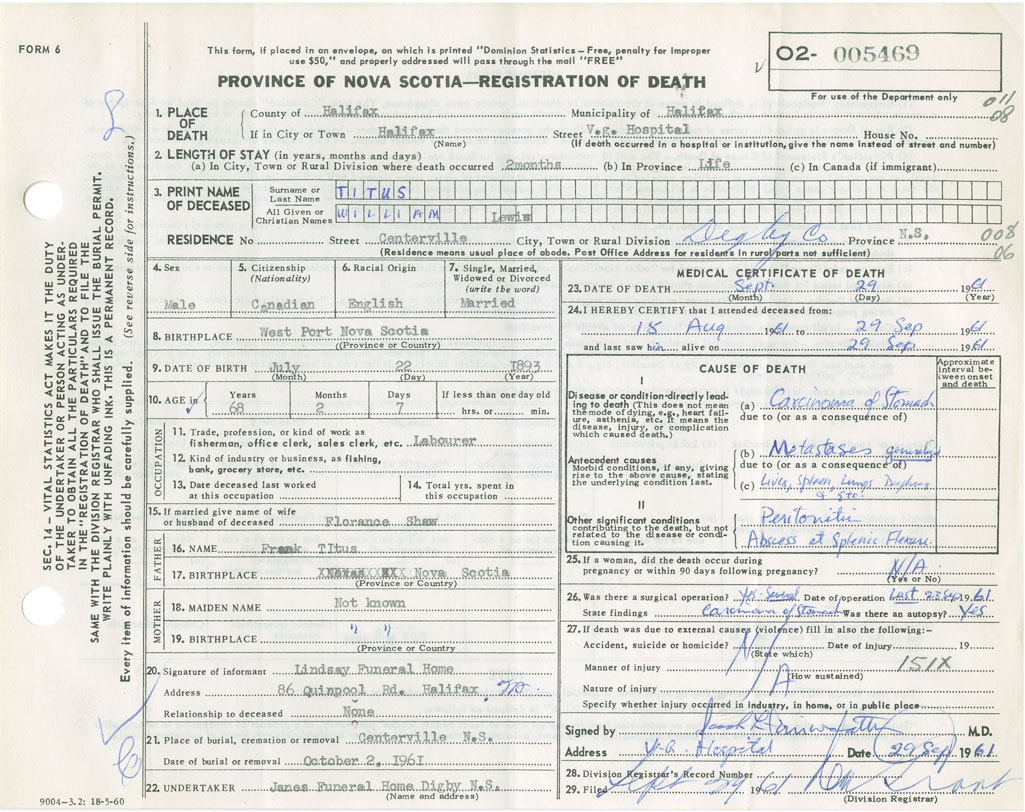 FORM 6
This form, if placed in an envelope, on which is printed "Dominion Statistics – Free, penalty for improper
use $50," and properly addressed will pass through the mail "FREE"
PROVINCE OF NOVA SCOTIA—REGISTRATION OF DEATH
O2- 005469
For use of the Department only
011
08
1. PLACE OF DEATH
County of Halifax Municipality of Halifax
If in City or Town Halifax Street V.G. Hospital House No.
(Name) (If death occurred in a hospital or institution, give the name instead of street and number)
2. LENGTH OF STAY (in years, months and days)
(a) In City, Town or Rural Division where death occurred 2months (b) In Province Life (c) In Canada (if immigrant)
3. PRINT NAME OF DECEASED
Surname or Last Name TITUS
All Given or Christian Names WILLIAM Lewis
RESIDENCE No Street Centerville City, Town or Rural Division Digby Co Province N.S.
(Residence means usual place of abode. Post Office Address for residents in rural parts not sufficient)
008
06
4. Sex Male
5. Citizenship (Nationality) Canadian
6. Racial Origin English
7. Single, Married, Widowed or Divorced (write the word) Married
8. BIRTHPLACE West Port Nova Scotia
(Province or Country)
9. DATE OF BIRTH July 22 1893
(Month) (Day) (Year)
10. AGE in Years 68 Months 2 Days 7 If less than one day old hrs. or min.
OCCUPATION
11. Trade, profession, or kind of work as
fisherman, office clerk, sales clerk, etc. Labourer
12. Kind of industry or business, as fishing,
bank, grocery store, etc.
13. Date deceased last worked at this occupation
14. Total yrs. spent in this occupation
15. If married give name of wife
or husband of deceased Florance Shaw
FATHER
16. NAME Frank TItus
17. BIRTHPLACE Nova Scotia
(Province or Country)
MOTHER
18. MAIDEN NAME Not known
19. BIRTHPLACE " "
(Province or Country)
20. Signature of informant Lindsay Funeral Home
Address 86 Quinpool Rd. Halifax
Relationship to deceased None
21. Place of burial, cremation or removal Centerville N.S.
Date of burial or removal October 2, 1961
22. UNDERTAKER Janes Funeral Home Digby N.S.
(Name and address)
MEDICAL CERTIFICATE OF DEATH
23. DATE OF DEATH Sept. 29 1961
(Month) (Day) (Year)
24. I HEREBY CERTIFY that I attended deceased from:
18 Aug 1961 to 29 Sep 1961
and last saw him alive on 29 Sep 1961
CAUSE OF DEATH
Approximate interval between onset and death
I
Disease or condition directly leading to death (This does not mean the mode of dying, e.g., heart failure, asthenia, etc. It means the disease, injury, or complication which caused death.)
(a) Carcinoma of Stomach
due to (or as a consequence of)
Antecedent causes
Morbid conditions, if any, giving rise to the above cause, stating the underlying condition last.
(b) Metastases generally
due to (or as a consequence of)
(c) Liver, Spleen, Lungs
& etc.
II
Other significant conditions contributing to the death, but not related to the disease or condition causing it.
Peritonitis
Abscess at Splenic Flexure.
25. If a woman, did the death occur during
pregnancy or within 90 days following pregnancy? N/A
(Yes or No)
26. Was there a surgical operation? Yes-Several Date of operation Last 23 Sep 1961
State findings Carcinoma of Stomach Was there an autopsy? Yes
27. If death was due to external causes (violence) fill in also the following:–
Accident, suicide or homicide? N/A Date of injury 19
(State which)
Manner of injury 151X
(How sustained)
Nature of injury
Specify whether injury occurred in industry, in home, or in public place
Signed by M.D.
Address V.G. Hospital Date 29 Sep 1961
28. Division Registrar's Record Number
29. Filed Sept 29 1961
(Division Registrar)
SEC. 14 – VITAL STATISTICS ACT MAKES IT THE DUTY
OF THE UNDERTAKER OR PERSON ACTING AS UNDER-
TAKER TO OBTAIN ALL THE PARTICULARS REQUIRED
IN THE "REGISTRATION OF DEATH" AND TO FILE THE
SAME WITH THE DIVISION REGISTRAR WHO SHALL ISSUE THE BURIAL PERMIT.
WRITE PLAINLY WITH UNFADING INK. THIS IS A PERMANENT RECORD.
Every item of information should be carefully supplied. (See reverse side for instructions.)
9004–3.2: 18-5-60